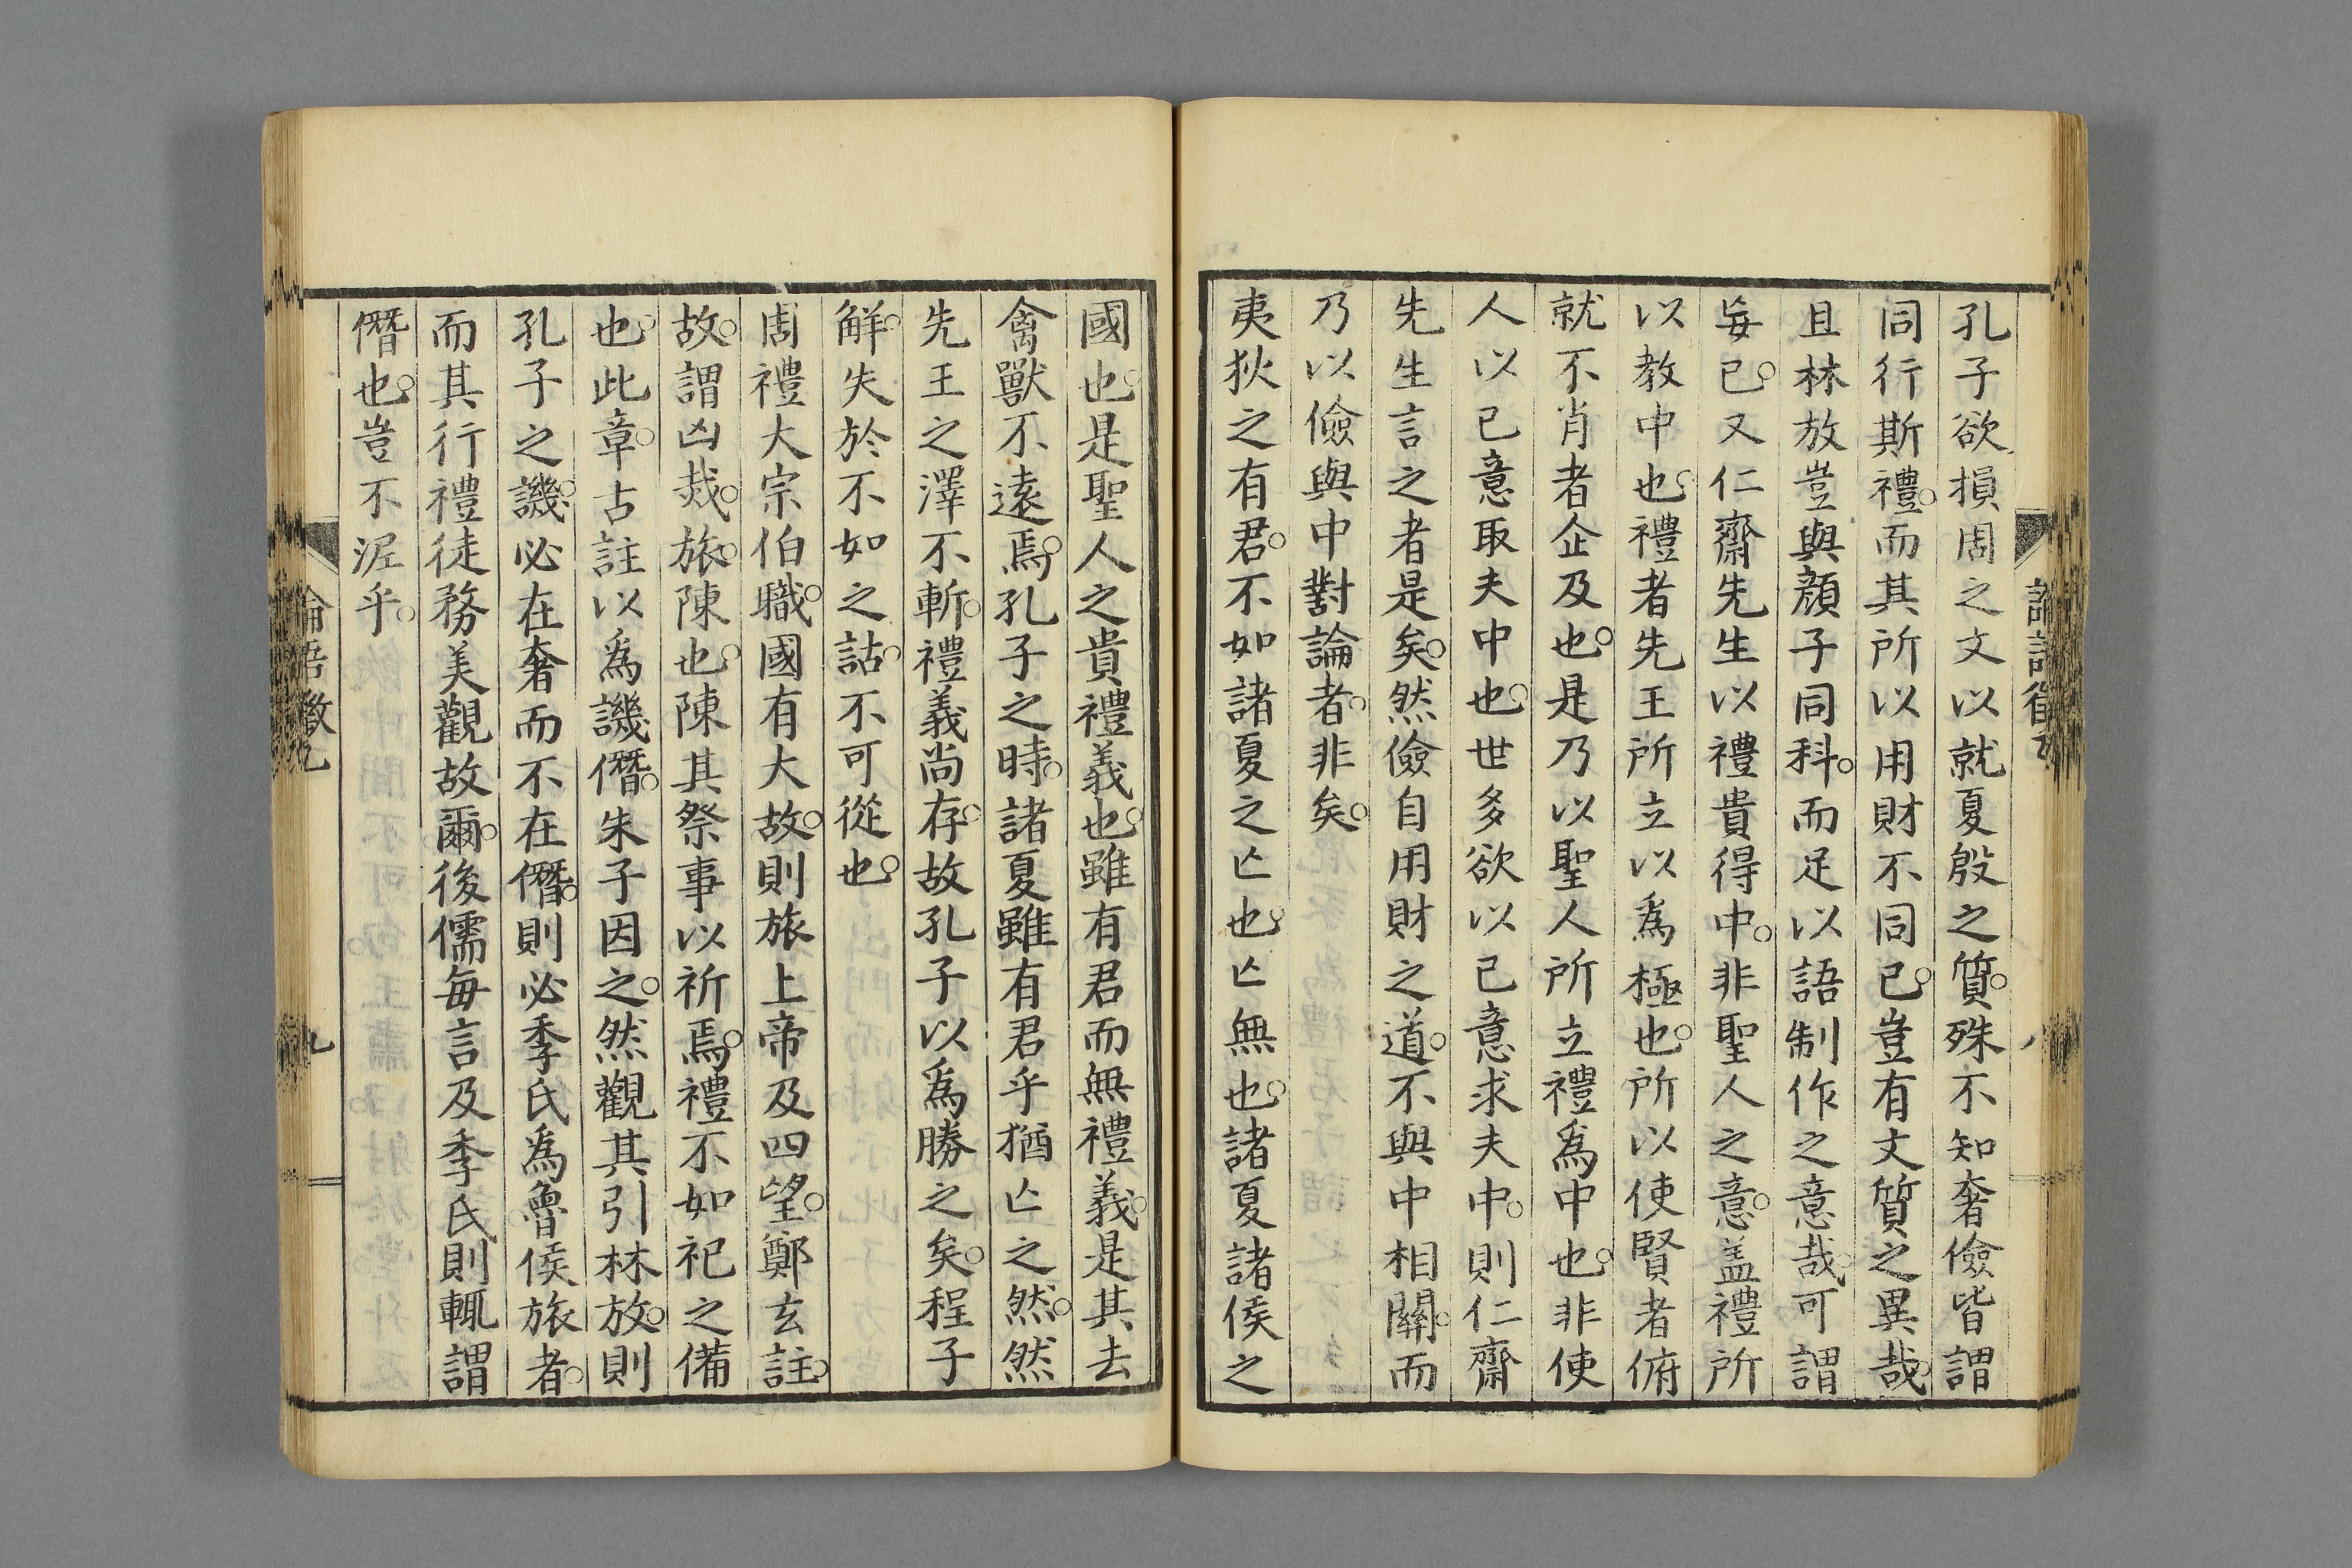 孔子欲損周之文以就夏殷之質。殊不知奢儉皆謂
同行斯禮。而其所以用財不同已。豈有文質之異哉。
且林放豈與顔子同科。而足以語制作之意哉。可謂
每已。又仁齋先生以禮貴得中。非聖人之意。盖禮所
以教中也。禮者先王所立以爲極也。所以使賢者俯
就不肖者企及也。是乃以聖人所立禮爲中也。非使
人以己意取夫中也。世多欲以己意求夫中。則仁齋
先生言之者是矣。然儉自用財之道。不與中相關。而
乃以儉與中對論者。非矣。
夷狄之有君。不如諸夏之亾也。亾無也。諸夏諸侯之
國也。是聖人之貴禮義也。雖有君而無禮義。是其去
禽獸不遠焉。孔子之時。諸夏雖有君乎猶亾之然。然
先王之澤不斬。禮義尚存。故孔子以爲勝之矣。程子
解。失於不如之詁。不可從也。
周禮大宗伯職。國有大故。則旅上帝及四望。鄭玄註。
故。謂凶烖。旅。陳也。陳其祭事以祈焉。禮不如祀之備
也。此章。古註以爲譏僭。朱子因之。然觀其引林放。則
孔子之譏。必在奢而不在僭。則必季氏爲魯侯旅者。
而其行禮徒務美觀故爾。後儒每言及季氏則輒謂
僭也。豈不泥乎。
論語徵九
九